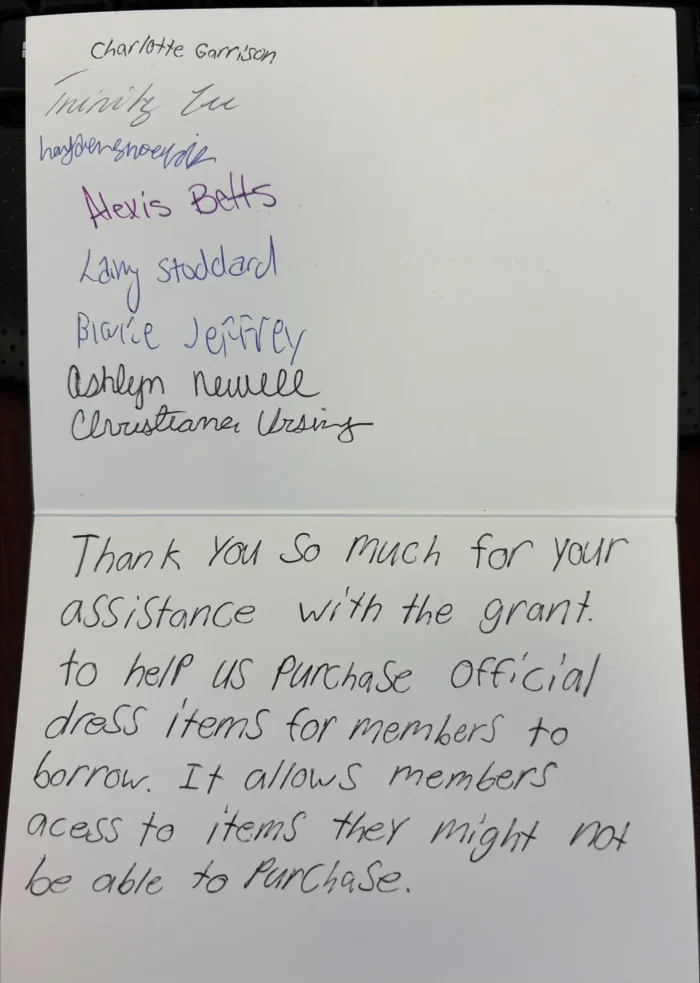 Charlotte Garrison
Trinity
Alexis Betts
Lainy Stoddard
Blarie Jeffrey
Ashlyn Newell
Christiana Ursing
Thank You So much for your
assistance with the grant.
to help us purchase official
dress items for members to
borrow. It allows members
acess to items they might not
be able to purchase.